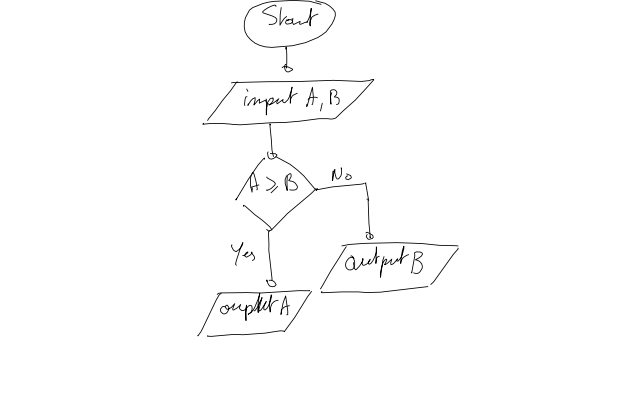 Start
input A, B
A ⩾ B
No
Yes
output B
ouput A